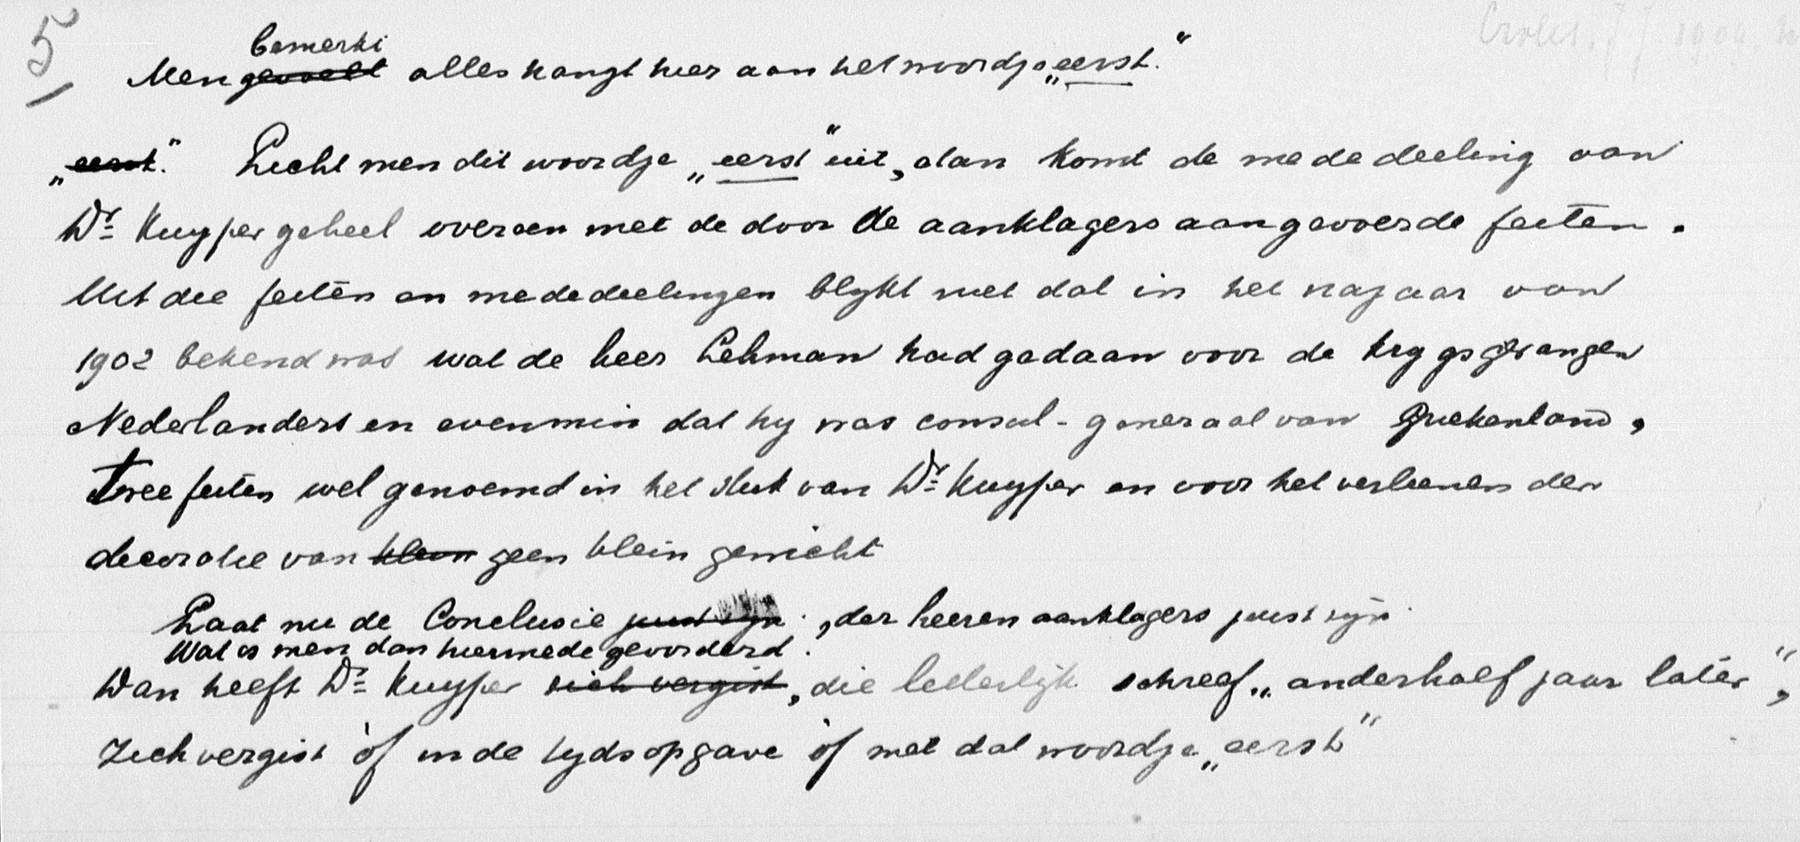 5
bemerkt
Men gevoelt alles hangt hier aan het woordje „eerst."
„eerst." Licht men dit woordje „eerst" uit, dan komt de mededeeling van
Dr Kuyper geheel overeen met de door de aanklagers aangevoerde feiten.
Uit die feiten en mededeelingen blykt niet dat in het najaar van
1902 bekend was wat de heer Lehman had gedaan voor de krygsgevangen
Nederlanders en evenmin dat hy was consul-generaal van Griekenland,
twee feiten wel genoemd in het stuk van Dr Kuyper en voor het verleenen der
decoratie van klein geen klein gewicht
Laat nu de Conclusie juist zyn, der heeren aanklagers juist zyn.
Wat is men dan hiermede gevorderd.
Dan heeft Dr Kuyper zich vergist, die letterlijk schreef „anderhalf jaar later",
zich vergist òf in de tydsopgave òf met dat woordje „eerst"